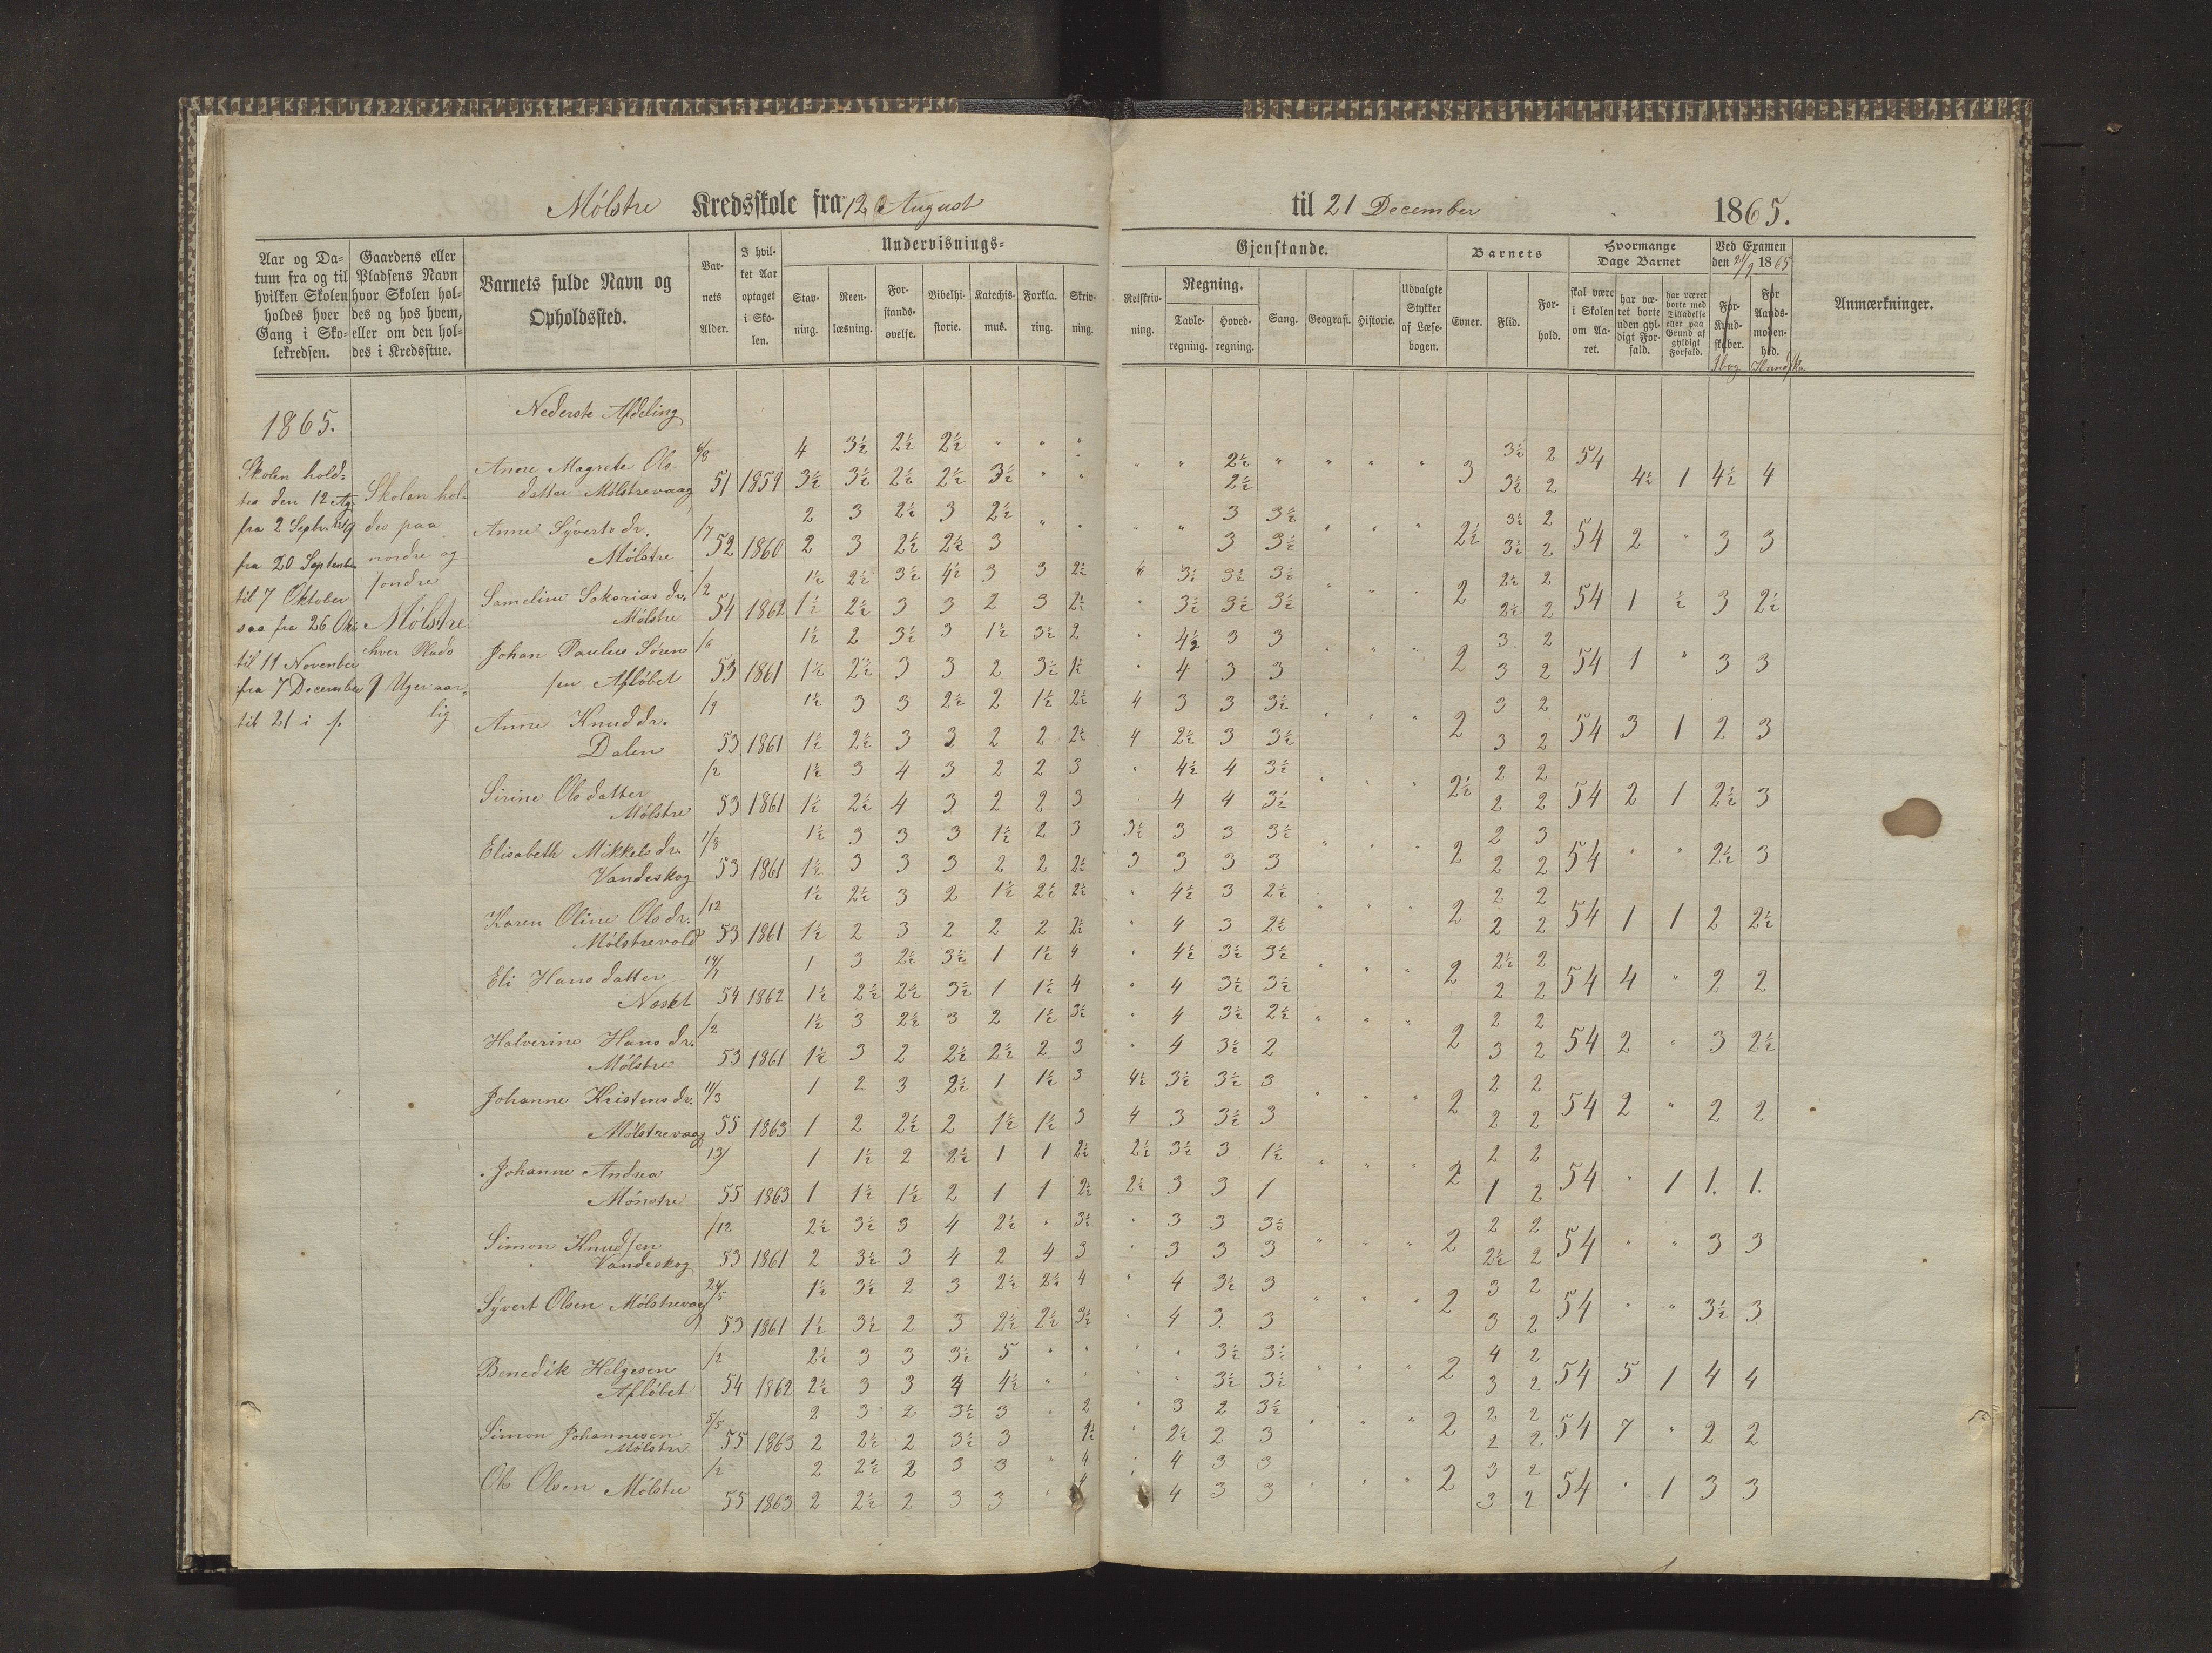 Mólstre Kredsskole fra 12 August til 21 December 1865.
Aar og Da-
tum fra og til
hvilken Skolen
holdes hver
Gang i Sko-
lekredsen.
Gaardens eller
Pladsens Navn
hvor Skolen hol-
des og hos hvem,
eller om den hol-
des i Kredsstue.
Barnets fulde Navn og
Opholdssted.
Bar-
nets
Alder.
I hvil-
ket Aar
optaget
i Sko-
len.
Undervisnings-
Stav-
ning.
Reen-
læsning.
For-
stands-
øvelse.
Bibelhi-
storie.
Katechis-
mus.
Forkla-
ring.
Skriv-
ning.
Gjenstande.
Retskriv-
ning.
Regning.
Tavle-
regning.
Hoved-
regning.
Sang.
Geografi.
Historie.
Udvalgte
Stykker
af Læse-
bogen.
Barnets
Evner.
Flid.
For-
hold.
Hvormange
Dage Barnet
skal være
i Skolen
om Aa-
ret.
har væ-
ret borte
uden gyl-
digt For-
fald.
har været
borte med
Tilladelse
eller paa
Grund af
gyldigt
Forfald.
Ved Examen
den 21/9 1865
For-
Kund-
skaber.
For
Aands-
moden-
hed.
Anmærkninger.
1865.
Skolen holdt
tes den 12 Ag.
fra 2 Septbr.
fra 20 September
til 7 Oktober
saa fra 26 Okt
til 11 November
fra 7 December
til 21 i s.
Skolen hol-
des paa
nordre og
søndre
Mólstre
hver Plads
9 Uger aar-
lig
Nederste Afdeling
Anne Magrete Ols 6/8 4 3½ 2½ 2½ " " " 2½ 3½ 2 54
datter Mólstrevaag 51 1859 3½ 3½ 2½ 2½ 3½ " " 2½ 3 3½ 2 4½ 1 4½ 4
Anne Syverts dr. /7 2 3 2½ 3 2½ " " 3 3½ 3½ 2
Mólstre 52 1860 2 3 2½ 2½ 3 3 3½ 2½ 3½ 2 54 2 " 3 3
Sameline Sakarias dr. /2 1½ 2½ 3½ 4½ 3 3 2½ 3½ 3½ 3½ 2½ 2
Mólstre 54 1862 1½ 2½ 3 3 2 3 2½ " 3½ 3½ 3½ 2 2½ 2 54 1 ½ 3 2½
Johan Paulus Sóren /6 1½ 2 3½ 3 1½ 3½ 2 " 4½ 3 3 3 2
sen Aflóbet 53 1861 1½ 2½ 3 3 2 3½ 1½ " 4 3 3 2 3 2 54 1 " 3 3
Anne Knud dr. /9 1½ 3 3 2½ 2 1½ 2½ 4 3 3 3½ 3 2
Dalen 53 1861 1½ 2½ 3 3 2 2 2½ 4 2½ 3 3½ 2 3 2 54 3 1 2 3
Sirine Olsdatter /2 1½ 3 4 3 2 2 3 " 4½ 4 3½ 2 2
Mólstre 53 1861 1½ 2½ 4 3 2 2 3 4 4 3½ 2½ 2 2 54 2 1 2½ 3
Elisabeth Mikkels dr. 1/8 1½ 3 3 3 1½ 2 3 3½ 3 3 3½ 2 3
Vandeskog 53 1861 1½ 3 3 3 2 2 2½ 3 3 3 3 2 2 2 54 " " 2½ 3
Karen Oline Ols dr. /12 1½ 2½ 3 2 1½ 2½ 2½ " 4½ 3 2½ 2 2
Mólstrevold 53 1861 1½ 2 3 2 2 2 2½ " 4 3 2½ 2 2 2 54 1 1 2 2½
Eli Hansdatter 14/7 1 3 2½ 3½ 1 1½ 4 " 4½ 3½ 3½ 2½ 2
Nesset 54 1862 1½ 2½ 2½ 3½ 1 1½ 4 " 4 3½ 3½ 2 2 2 54 4 " 2 2
Halverine Hans dr. /2 1½ 3 2½ 3 2 1½ 3½ " 4 3½ 2½ 2 2
Mólstre 53 1861 1½ 3 2 2½ 2½ 2 3 " 4 3½ 2 2 3 2 54 2 " 3 2½
Johanne Kristens dr. 11/3 1 2 3 2½ 1 1½ 3 4½ 3½ 3½ 3 2 2
Mólstrevaag 55 1863 1 2 2½ 2 1½ 1½ 3 4 3 3½ 3 2 2 2 54 2 " 2 2
Johanne Andrea 13/ 1 1½ 2 2½ 1 1 2½ 2½ 3½ 3 1½ 2 2
Mónstre 55 1863 1 1½ 1½ 2 1 1 2½ 2½ 3 3 1 2 1 2 54 " 1 1. 1.
Simon Knudsen /12 2½ 3½ 3 4 2½ " 3½ " 3 3 3½ 2 2
Vandeskog 53 1861 2 3½ 3 4 2 4 3 " 3 3 3 2 2½ 2 54 " " 3 3
Syvert Olsen Mólstrevaag 24/5 1½ 3½ 2 3 2½ 2½ 4 " 4 3½ 3 3 2
53 1861 1½ 3½ 2 3 2½ 2½ 3½ " 4 3. 3 2 3 2 54 " " 3½ 3
Benedik Helgesen /2 2½ 3 3 3½ 5 " " " " 3½ 3½ 4 2
Aflóbet 54 1862 2½ 3 3 4 4½ " " " 3½ 3½ 2 3 2 54 5 1 4 4
Simon Johannesen 5/5 2 3 2 3½ 3 " 2 " 3 2 3½ 2 2
Mólstre 55 1863 2 2½ 2 3½ 3 2½ " 2½ 2 3 2 2 2. 54 7 " 2 2
Ole Olsen Mólstre /2 2 2½ 2 3 3 " 4 " 4 3 3 3 2
55 1863 2 2½ 2 3 3 " 4 4 3 3 2 3 2 54 " 1 3 3